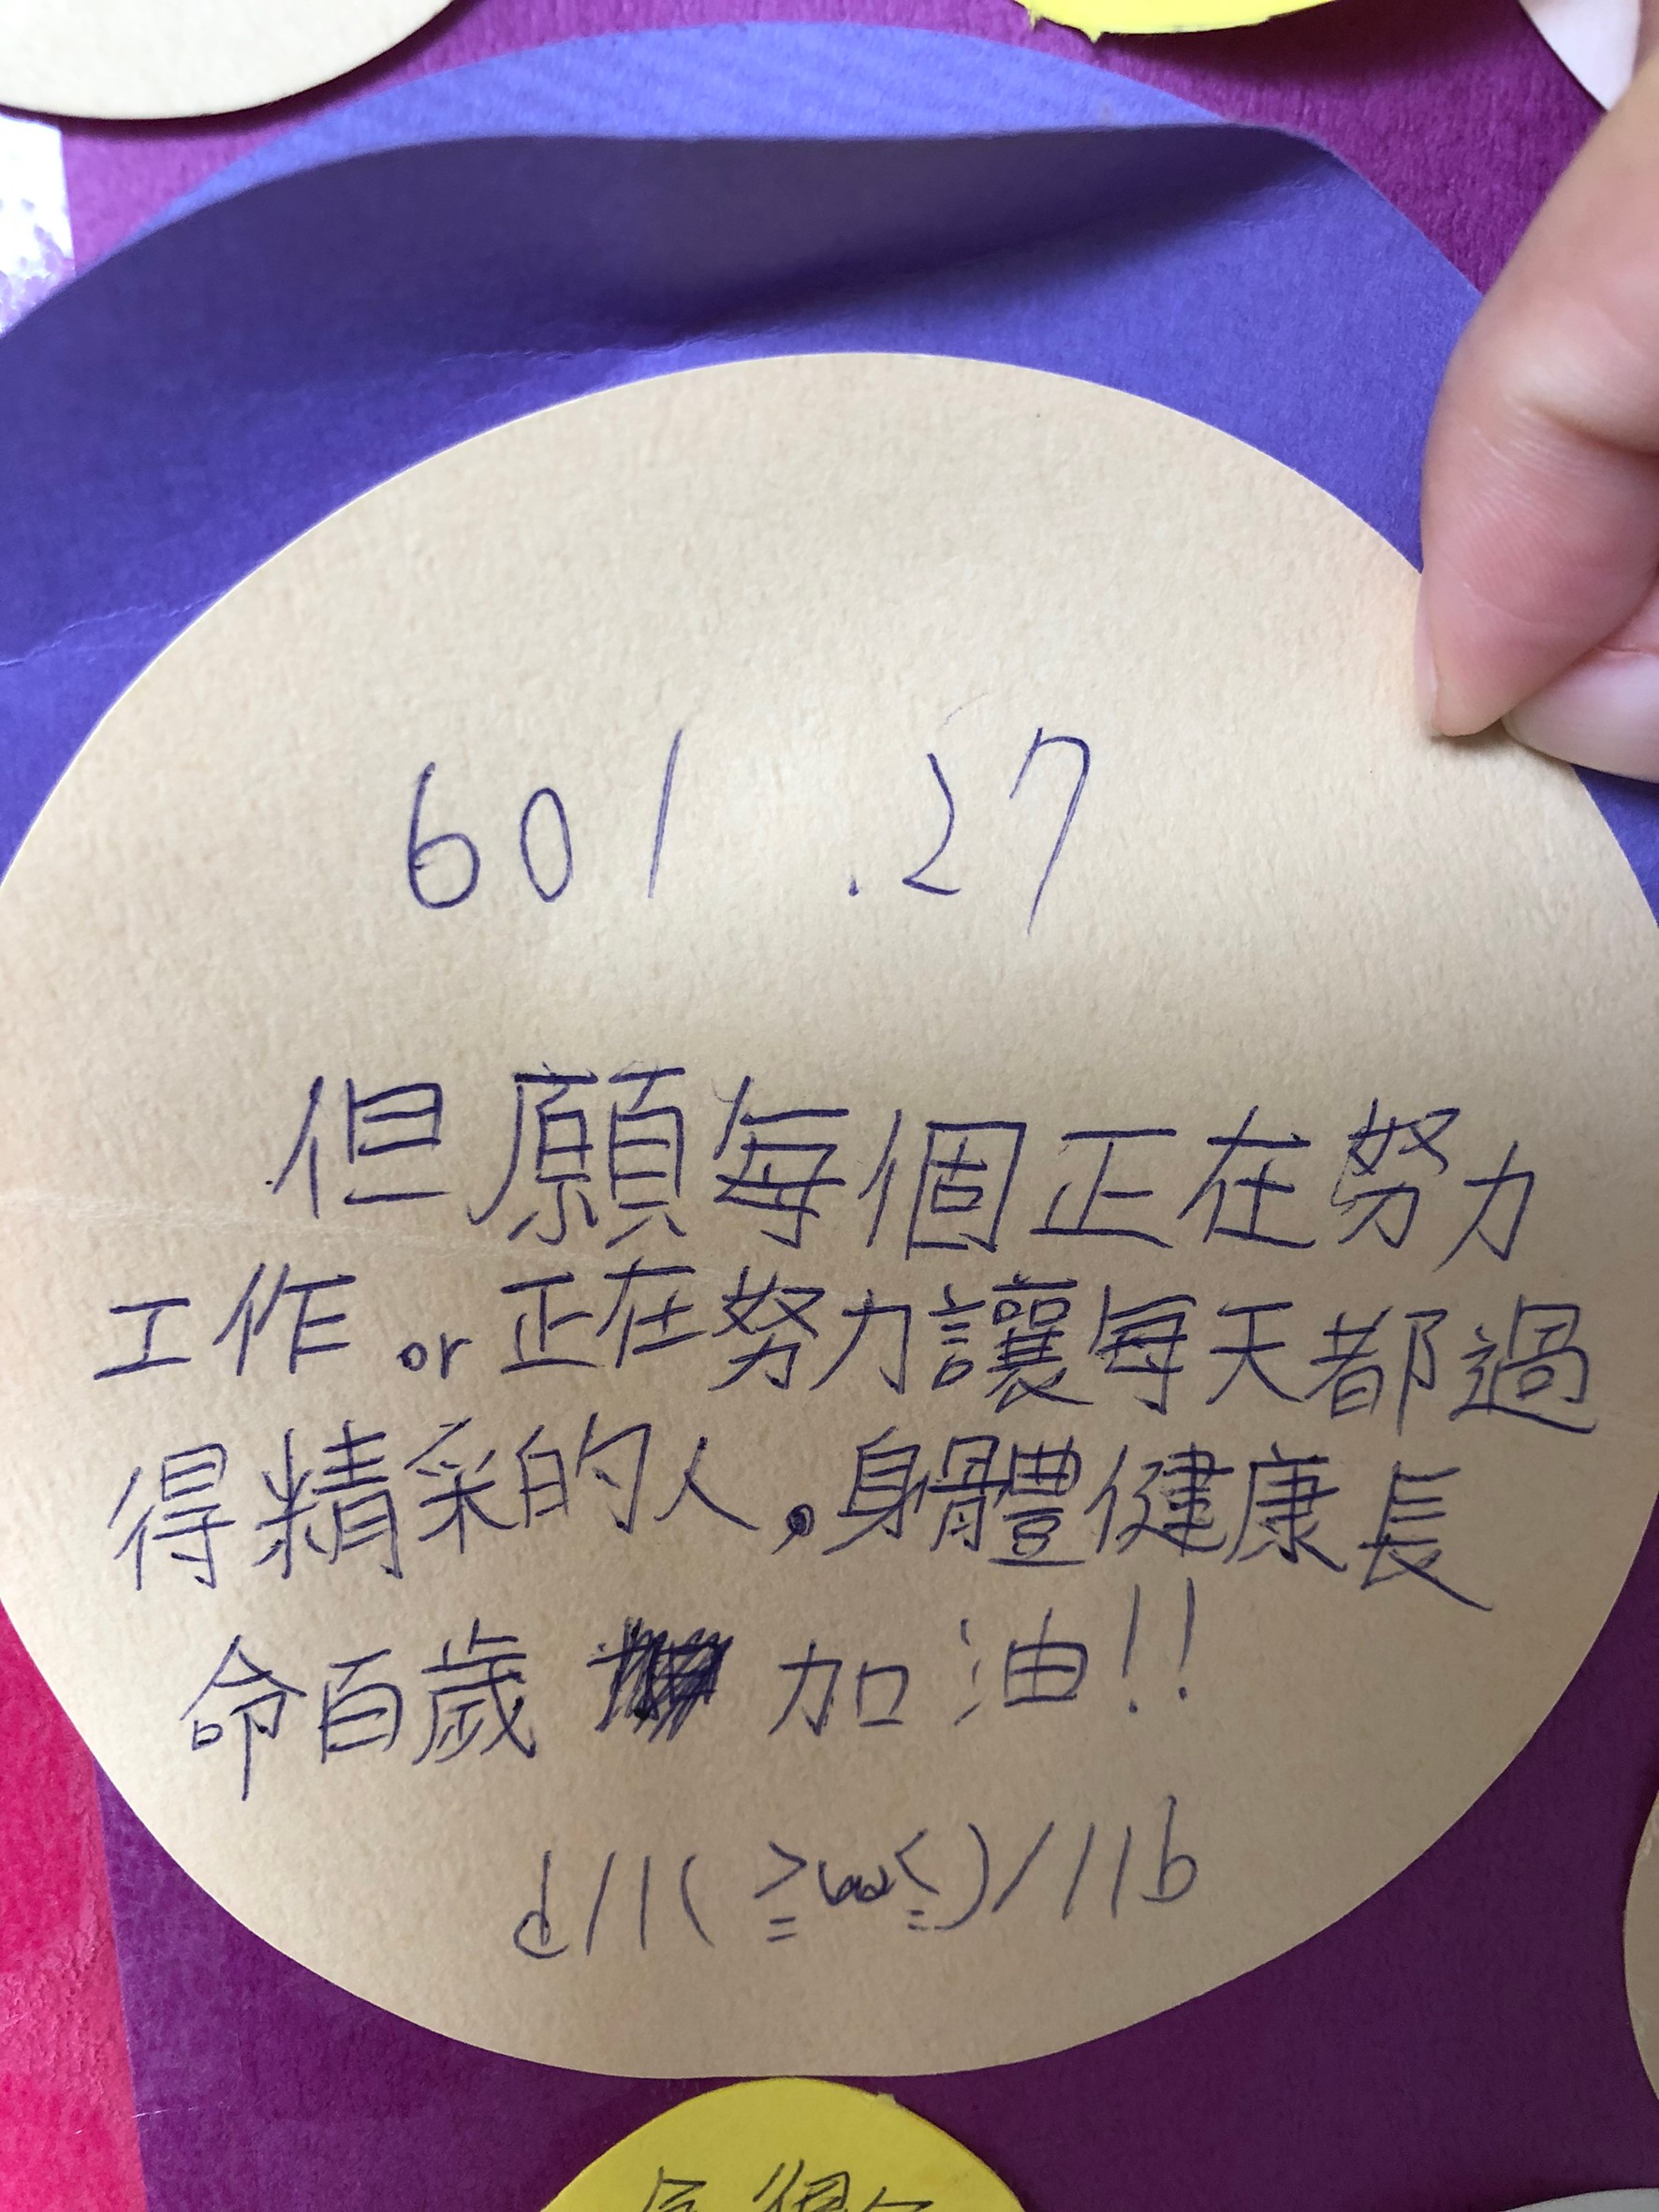 601 .27
但願每個正在努力
工作 or 正在努力讓每天都過
得精采的人,身體健康長
命百歲 加油!!
d//(≧ω≦)///b